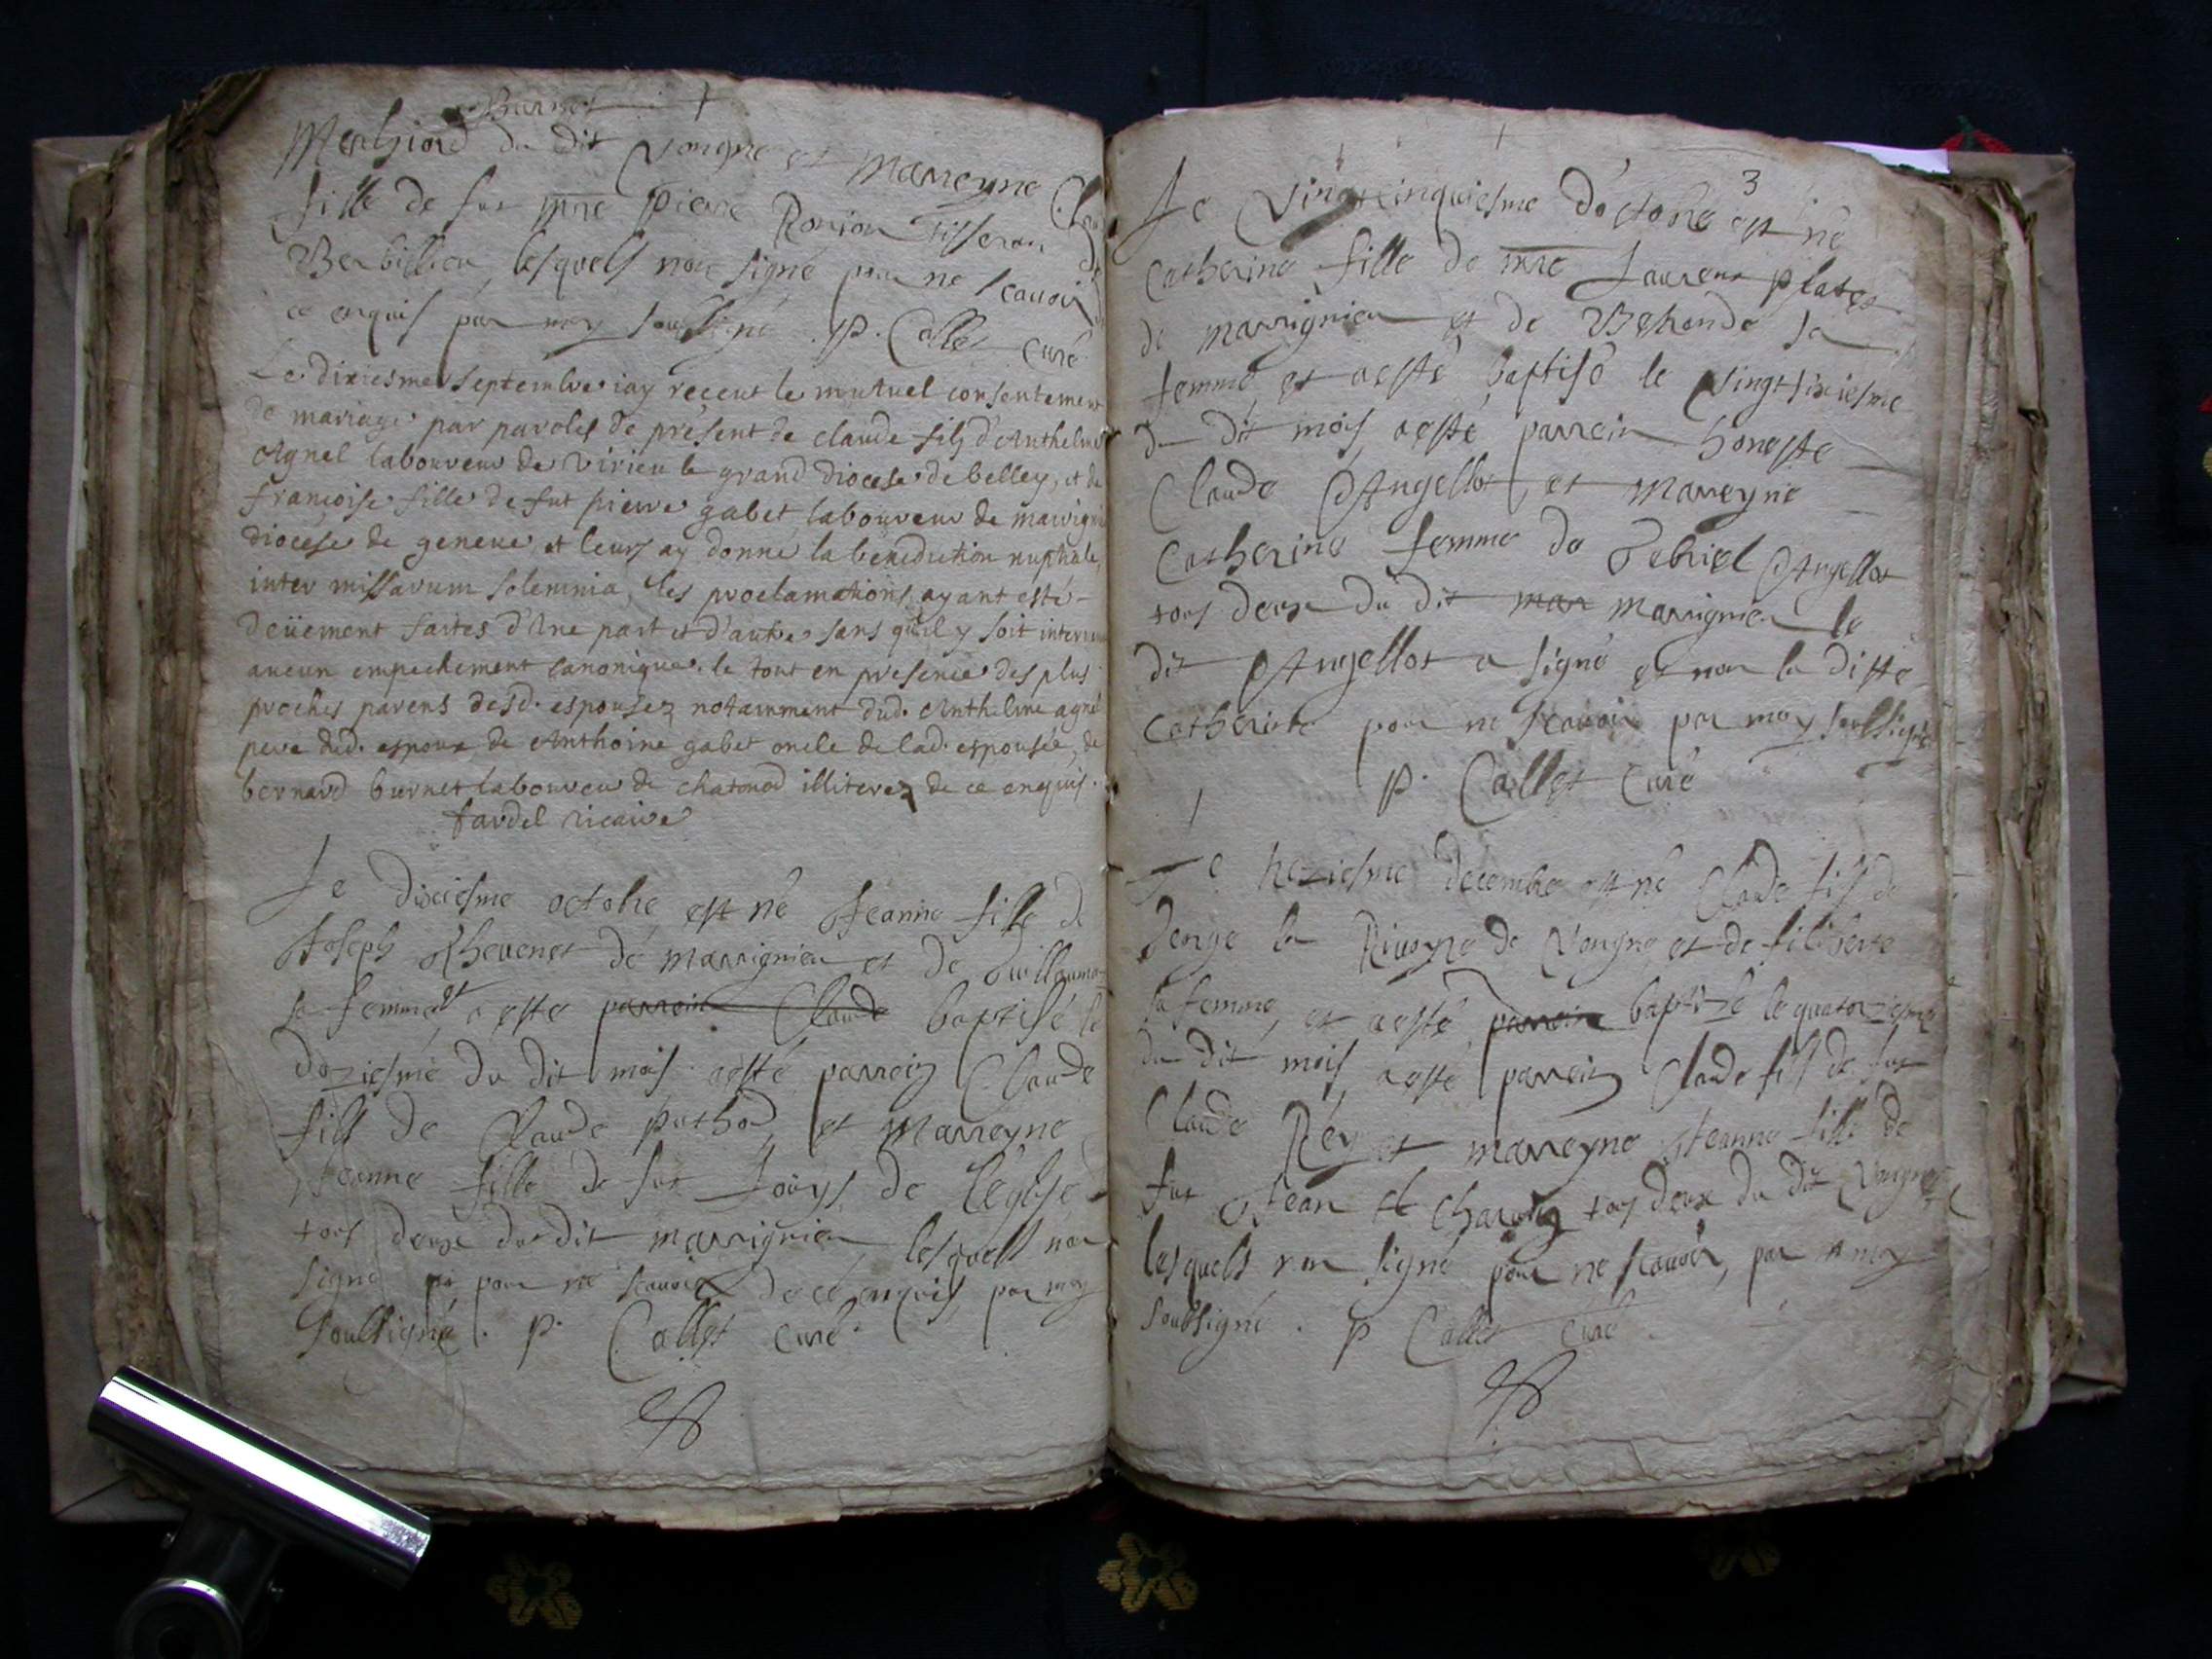 Burnet
du dit Vongne et Marreyne
fille de fut mre pierre Tisseran
lesquels non signé pour ne scauoir
ce enquis par moy soussigné P. Collet curé
Le dixiesme septembre iay receut le mutuel consentement
de mariage par paroles de présent de claude fils d'Anthelme
Agnel laboureur de virieu le grand diocese de belley, et de
francoise fille de fut pierre gabet laboureur de marrignie
diocèse de geneue et leurs ay donné la benediction nuptiale,
inter missarum solemnia, les proclamations ayant esté
deüement faites d'Vne part et d'autre sans qu'il y soit interuenu
aucun empechement canonique. le tout en presence des plus
proches parens desd. espousez notamment dud. Anthelme agnel
pere dud. espoux, de Anthoine gabet oncle de lad. espousée, de
bernard burnet laboureur de chatonod illiterez de ce enquis.
fardel vicaire
Le dixiesme octobre est né Jeanne fille de
Joseph Theuenet de marrignieu et de Guillauma
sa femme et a este parrein Claude baptisé le
doziesme du dit mois aesté parrein Claude
fils de Claude puthod et Marreyne
Jeanne fille de fut Louys de Léglise
tous deux du dit marrignieu lesquels non
signé pa pour ne scauoir de ce enquis par moy
soussigné. p. Collet curé.
3
Le Vingtcinquiesme d'octobre est né
Catherine fille de mre Laurent platet
de marrignieu et de sa
femme, et aesté baptisé le vingtsixiesme
du dit mois, aesté parrein honeste
Claude Angellot, et Marreyne
Catherine femme de Gebriel Angellot
tous deux du dit mar marrignieu le
dit Angellot a signé et non la ditte
Catherine pour ne scauoir par moy soussigné
P. Collet Curé
Le treziesme decembre est né Claude fils de
la Riuoyre de Vongne et de filiberte
sa femme, et aesté parrein baptizé le quatorziesme
du dit mois, aesté parrein Claude fils de fut
Claude Rey et marreyne Jeanne fille de
fut Jean tous deux du dit Vongne
lesquels non signé pour ne scauoir, par moy
soubsigné. P Collet Curé.